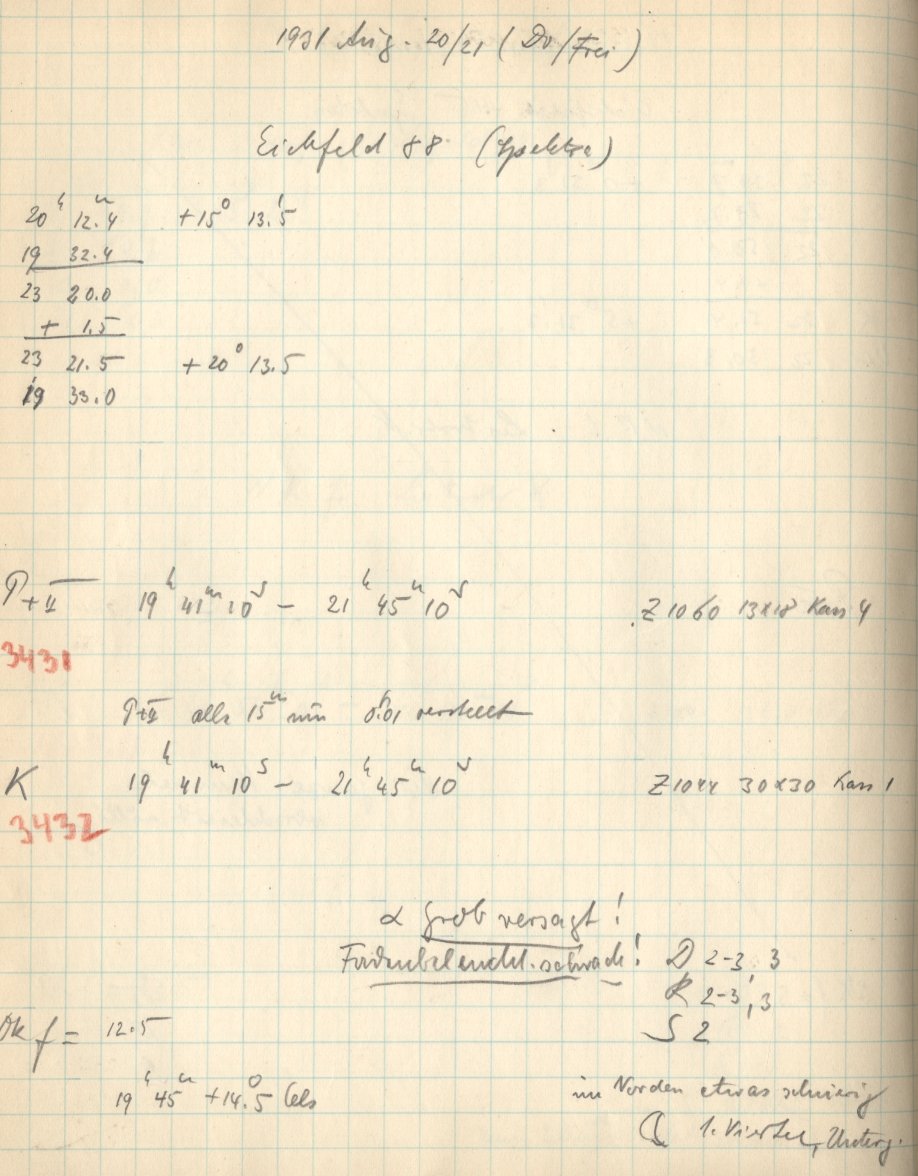 1931 Aug. 20/21 (Do/Frei)
Eichfeld 88 (Spektra)
20ʰ 12.ᵐ4 +15° 13.'5
19 32.4
23 20.0
+ 1.5
23 21.5 +20° 13.5
19 33.0
19ʰ 41ᵐ 10ˢ – 21ʰ 45ᵐ 10ˢ Z 1060 13x18 Kass 4
3431
alle 15ᵐ um 0.01 verstellt
K 19ʰ 41ᵐ 10ˢ – 21ʰ 45ᵐ 10ˢ Z1044 30x30 Kass 1
3432
α grob versagt!
Fadenbeleucht. schwach! D 2-3, 3
R 2-3, 3
S 2
f = 12.5
19ʰ 45ᵐ +14.°5 Cels
im Norden etwas schmierig
1. Viertel, Unterg.